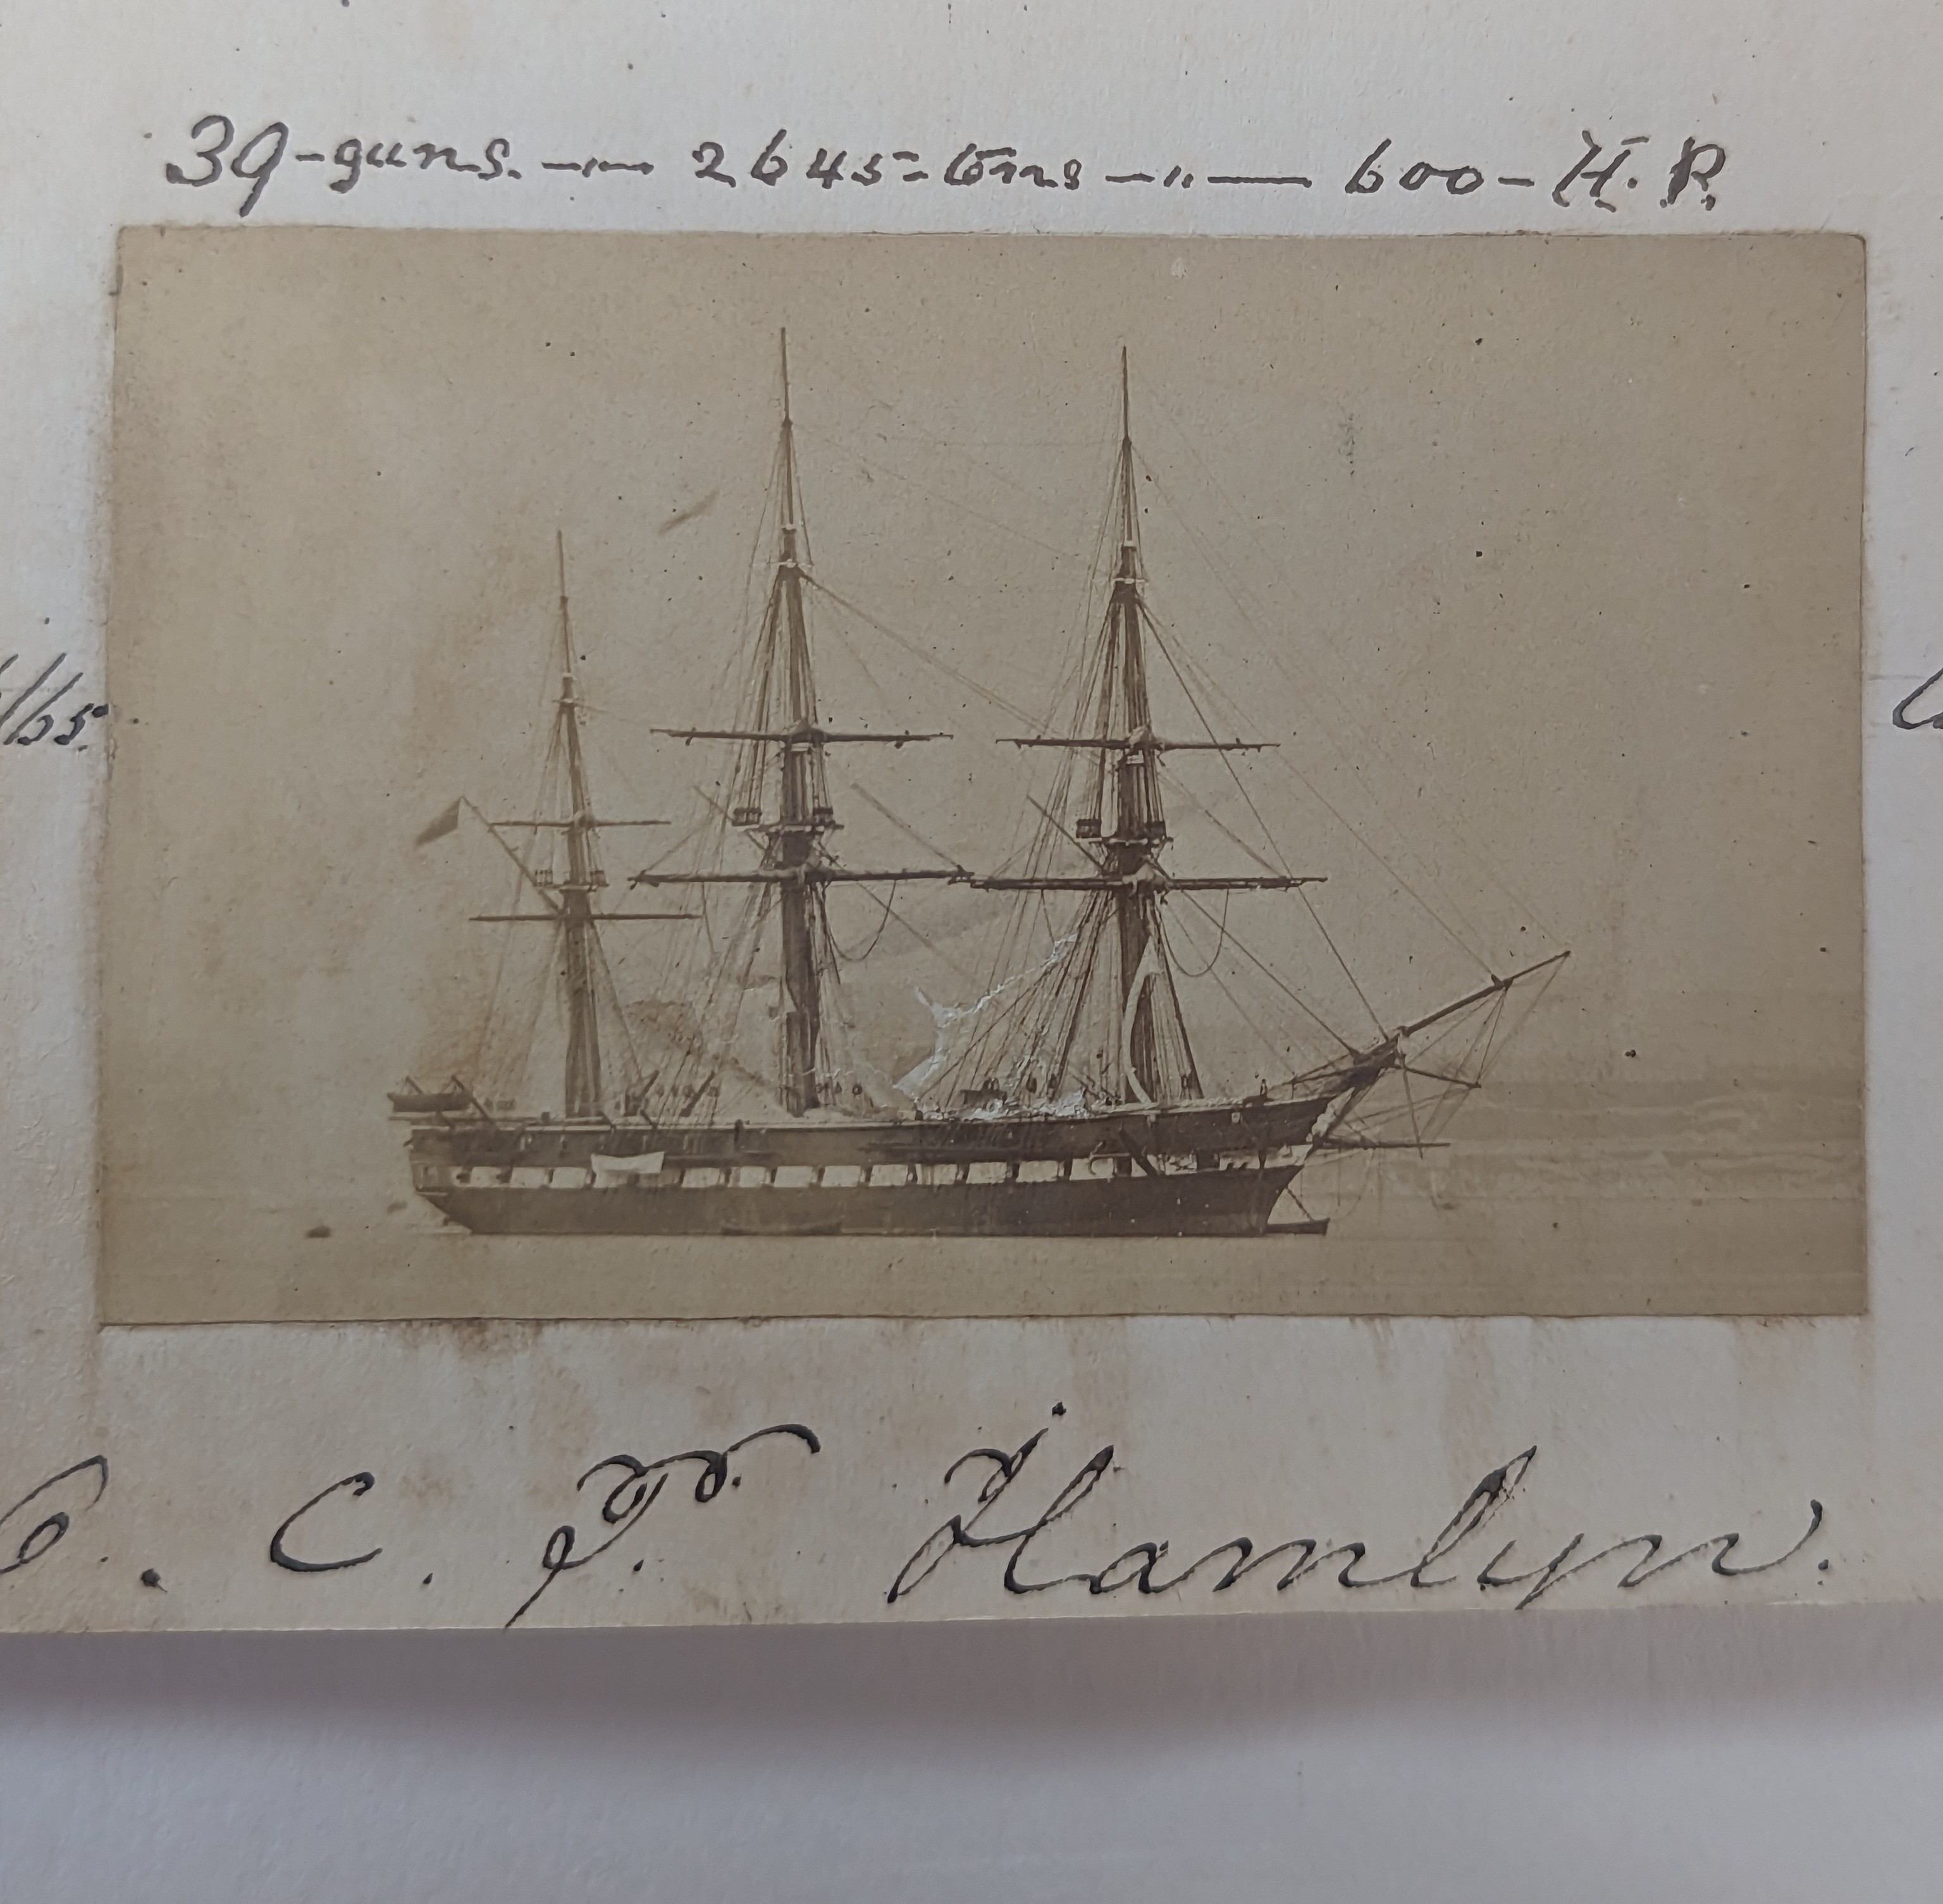 39-guns. —„— 2645-tons —„— 600-H.P.
/65.
C. F. Hamlyn.